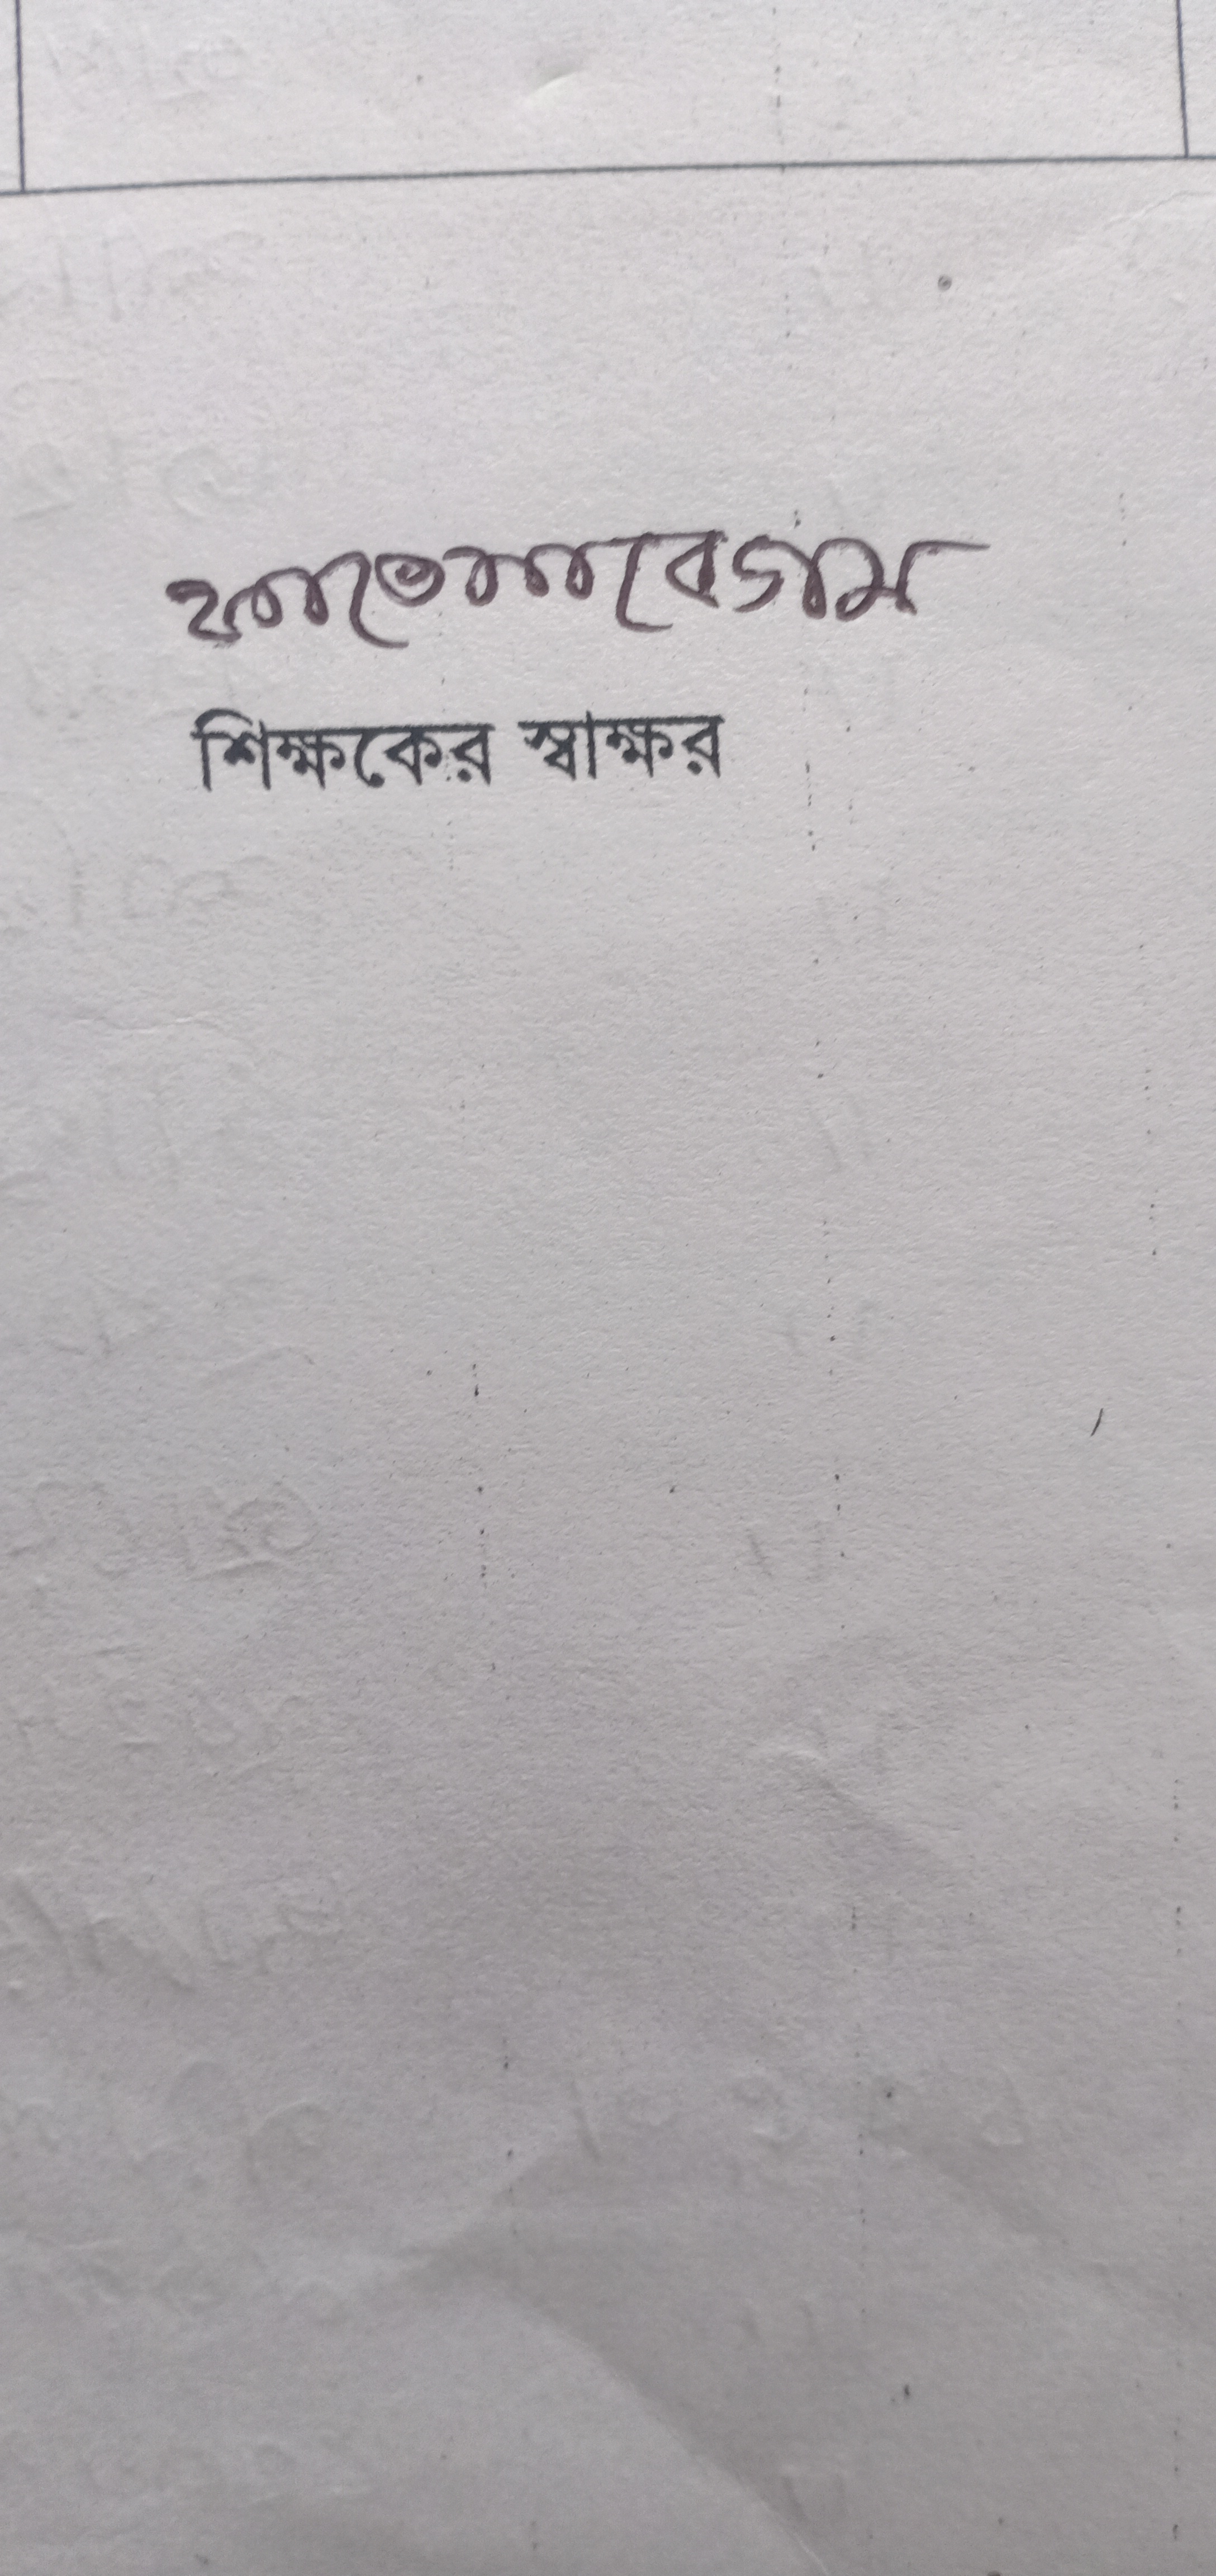 বেগম
শিক্ষকের স্বাক্ষর